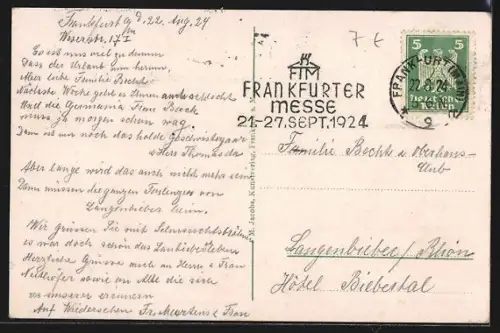 Frankfurt a/M d. 22. Aug. 24
Weserstr. 17 I
Es ist uns viel zu dumm
Dass der Urlaub nun herum,
Aber liebe Familie Becht
Nächste Woche geht es Ihnen auch schlecht
Und die Germania Frau Back
muss ja morgen schon weg
Dem ist um noch das holde Geschwisterpaar
Herr Thomas da
Aber lange wird das auch nicht mehr sein
Dann müssen die ganzen
Langenbieber heim.
Wir grüssen Sie mit
es war doch schön das Landleben
Herzliche Grüsse auch an Herrn & Frau
sowie an Alle die sich
unserer erinnern
Auf Wiedersehen Fr. Meertens & Frau
M. Jacobs, Kunstverlag, Frankfurt
7 €
FRANKFURTER
MESSE
21.-27. SEPT. 1924
FRANKFURT (MAIN)
22.8.24
9
5 5
Deutsches Reich
Familie Becht
Club
Langenbieber / Rhön
Hôtel Biebertal